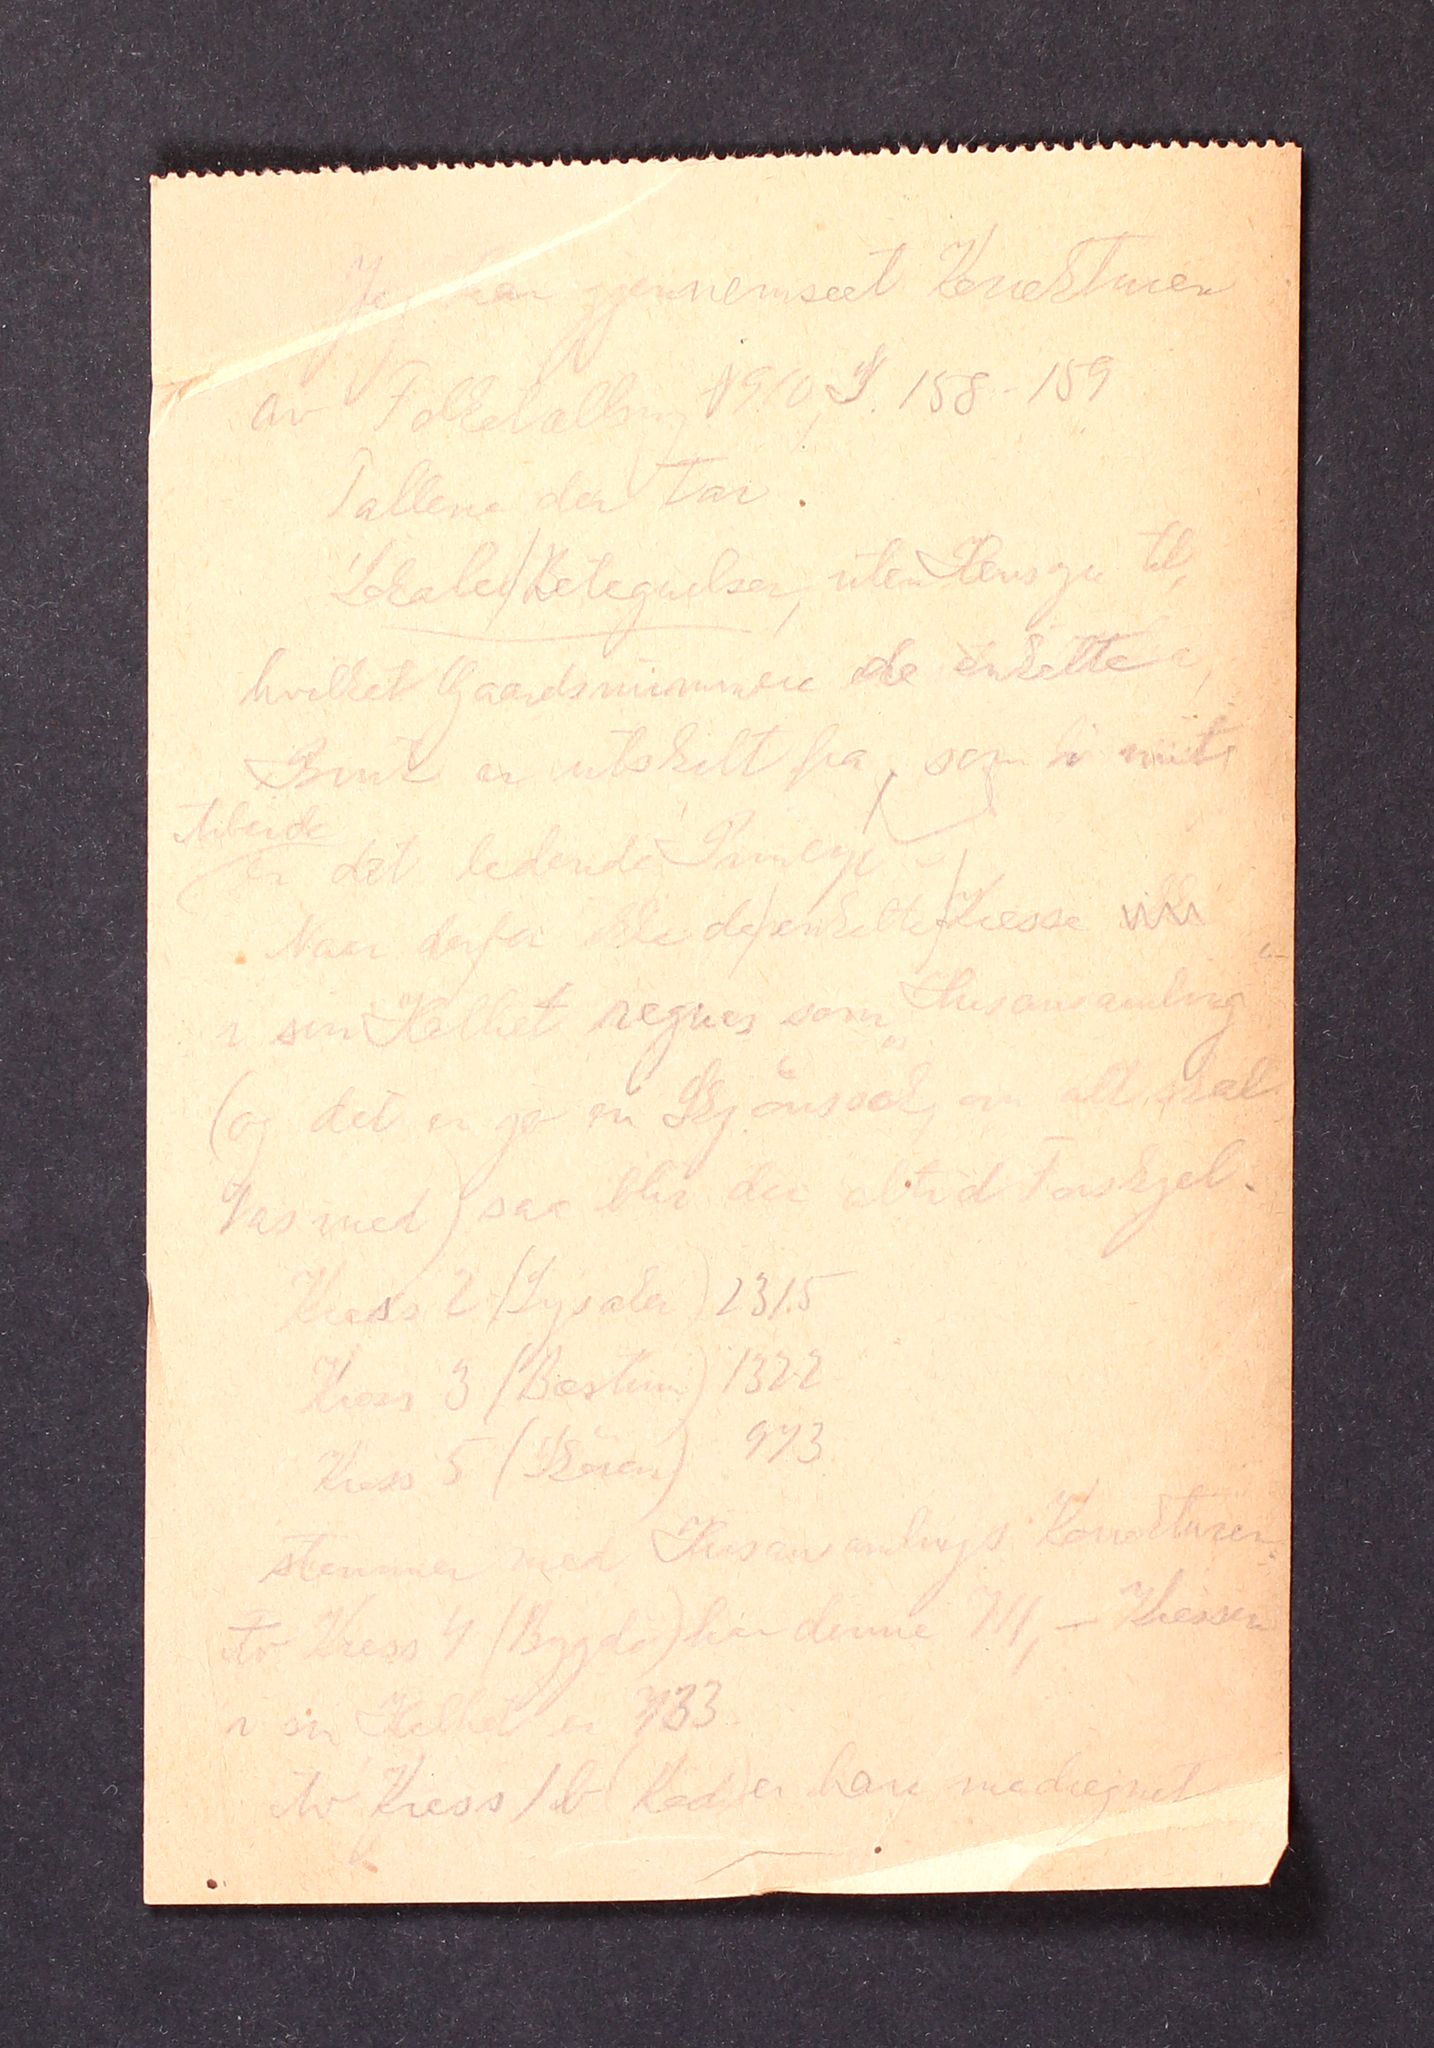 Jeg har gjennemseet Korrekturen
av Folketælling 1910, S. 158-159
Tallene der tar
Lokale Betegnelser, uten Hensyn til,
hvilket Gaardsnummer de enkelte
Bruk er utskilt fra, som i mit
Arbeide
er det ledende Princip.
Naar derfor ikke de enkelte Kresse
i sin Helhet regnes som "Husansamling"
(og det er jo en Skjønssak, om alt skal
tas med) saa blir der altid Forskjel.
Kress 2 (Lysaker) 2315
Kress 3 (Bæstum) 1322
Kress 5 (Skøien) 973
stemmer med Husansamlings Korrekturen.
Av Kress 4 (Bygdø) har denne 711, – Kressen
i sin Helhet er 733
Av Kress 1 b er kan medregnet